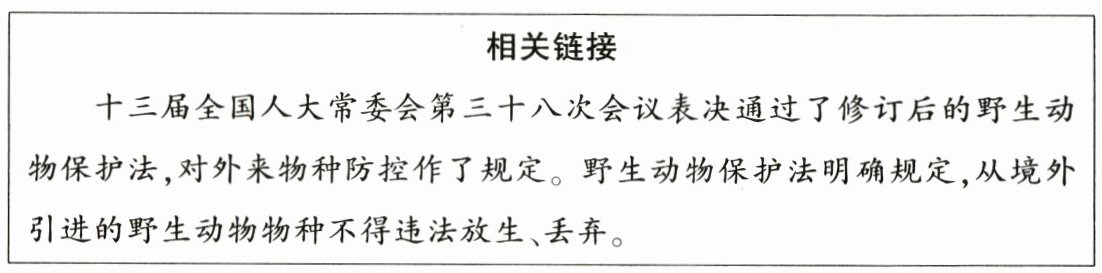 相关链接
十三届全国人大常委会第三十八次会议表决通过了修订后的野生动
物保护法,对外来物种防控作了规定。野生动物保护法明确规定,从境外
引进的野生动物物种不得违法放生、丢弃。